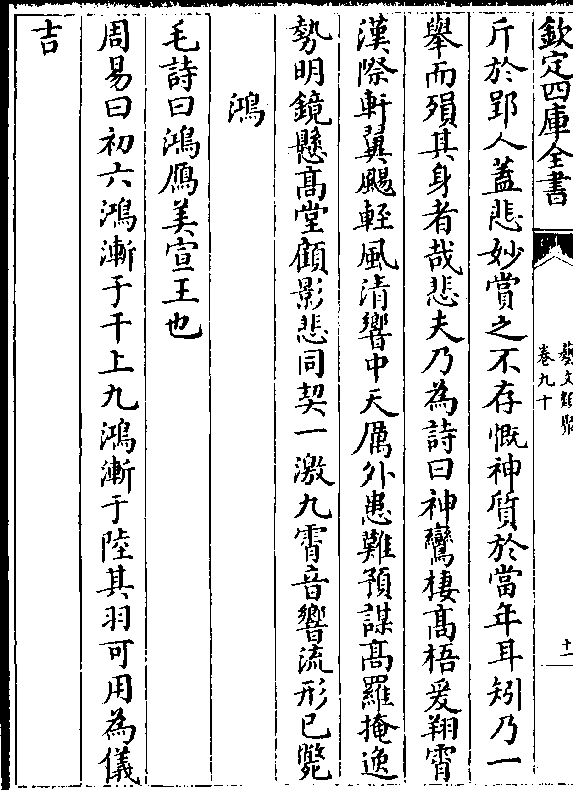 欽定四庫全書
藝文類聚
卷九十
十一
斤於郢人蓋悲妙賞之不存慨神質於當年耳矧乃一
舉而殞其身者哉悲夫乃為詩曰神鸞棲髙梧爰翔霄
漢際軒翼颺輕風清響中天厲外患難預謀髙羅掩逸
勢明鏡懸髙堂顧影悲同契一激九霄音響流形已斃
鴻
毛詩曰鴻鴈美宣王也
周易曰初六鴻漸于干上九鴻漸于陸其羽可用為儀
吉